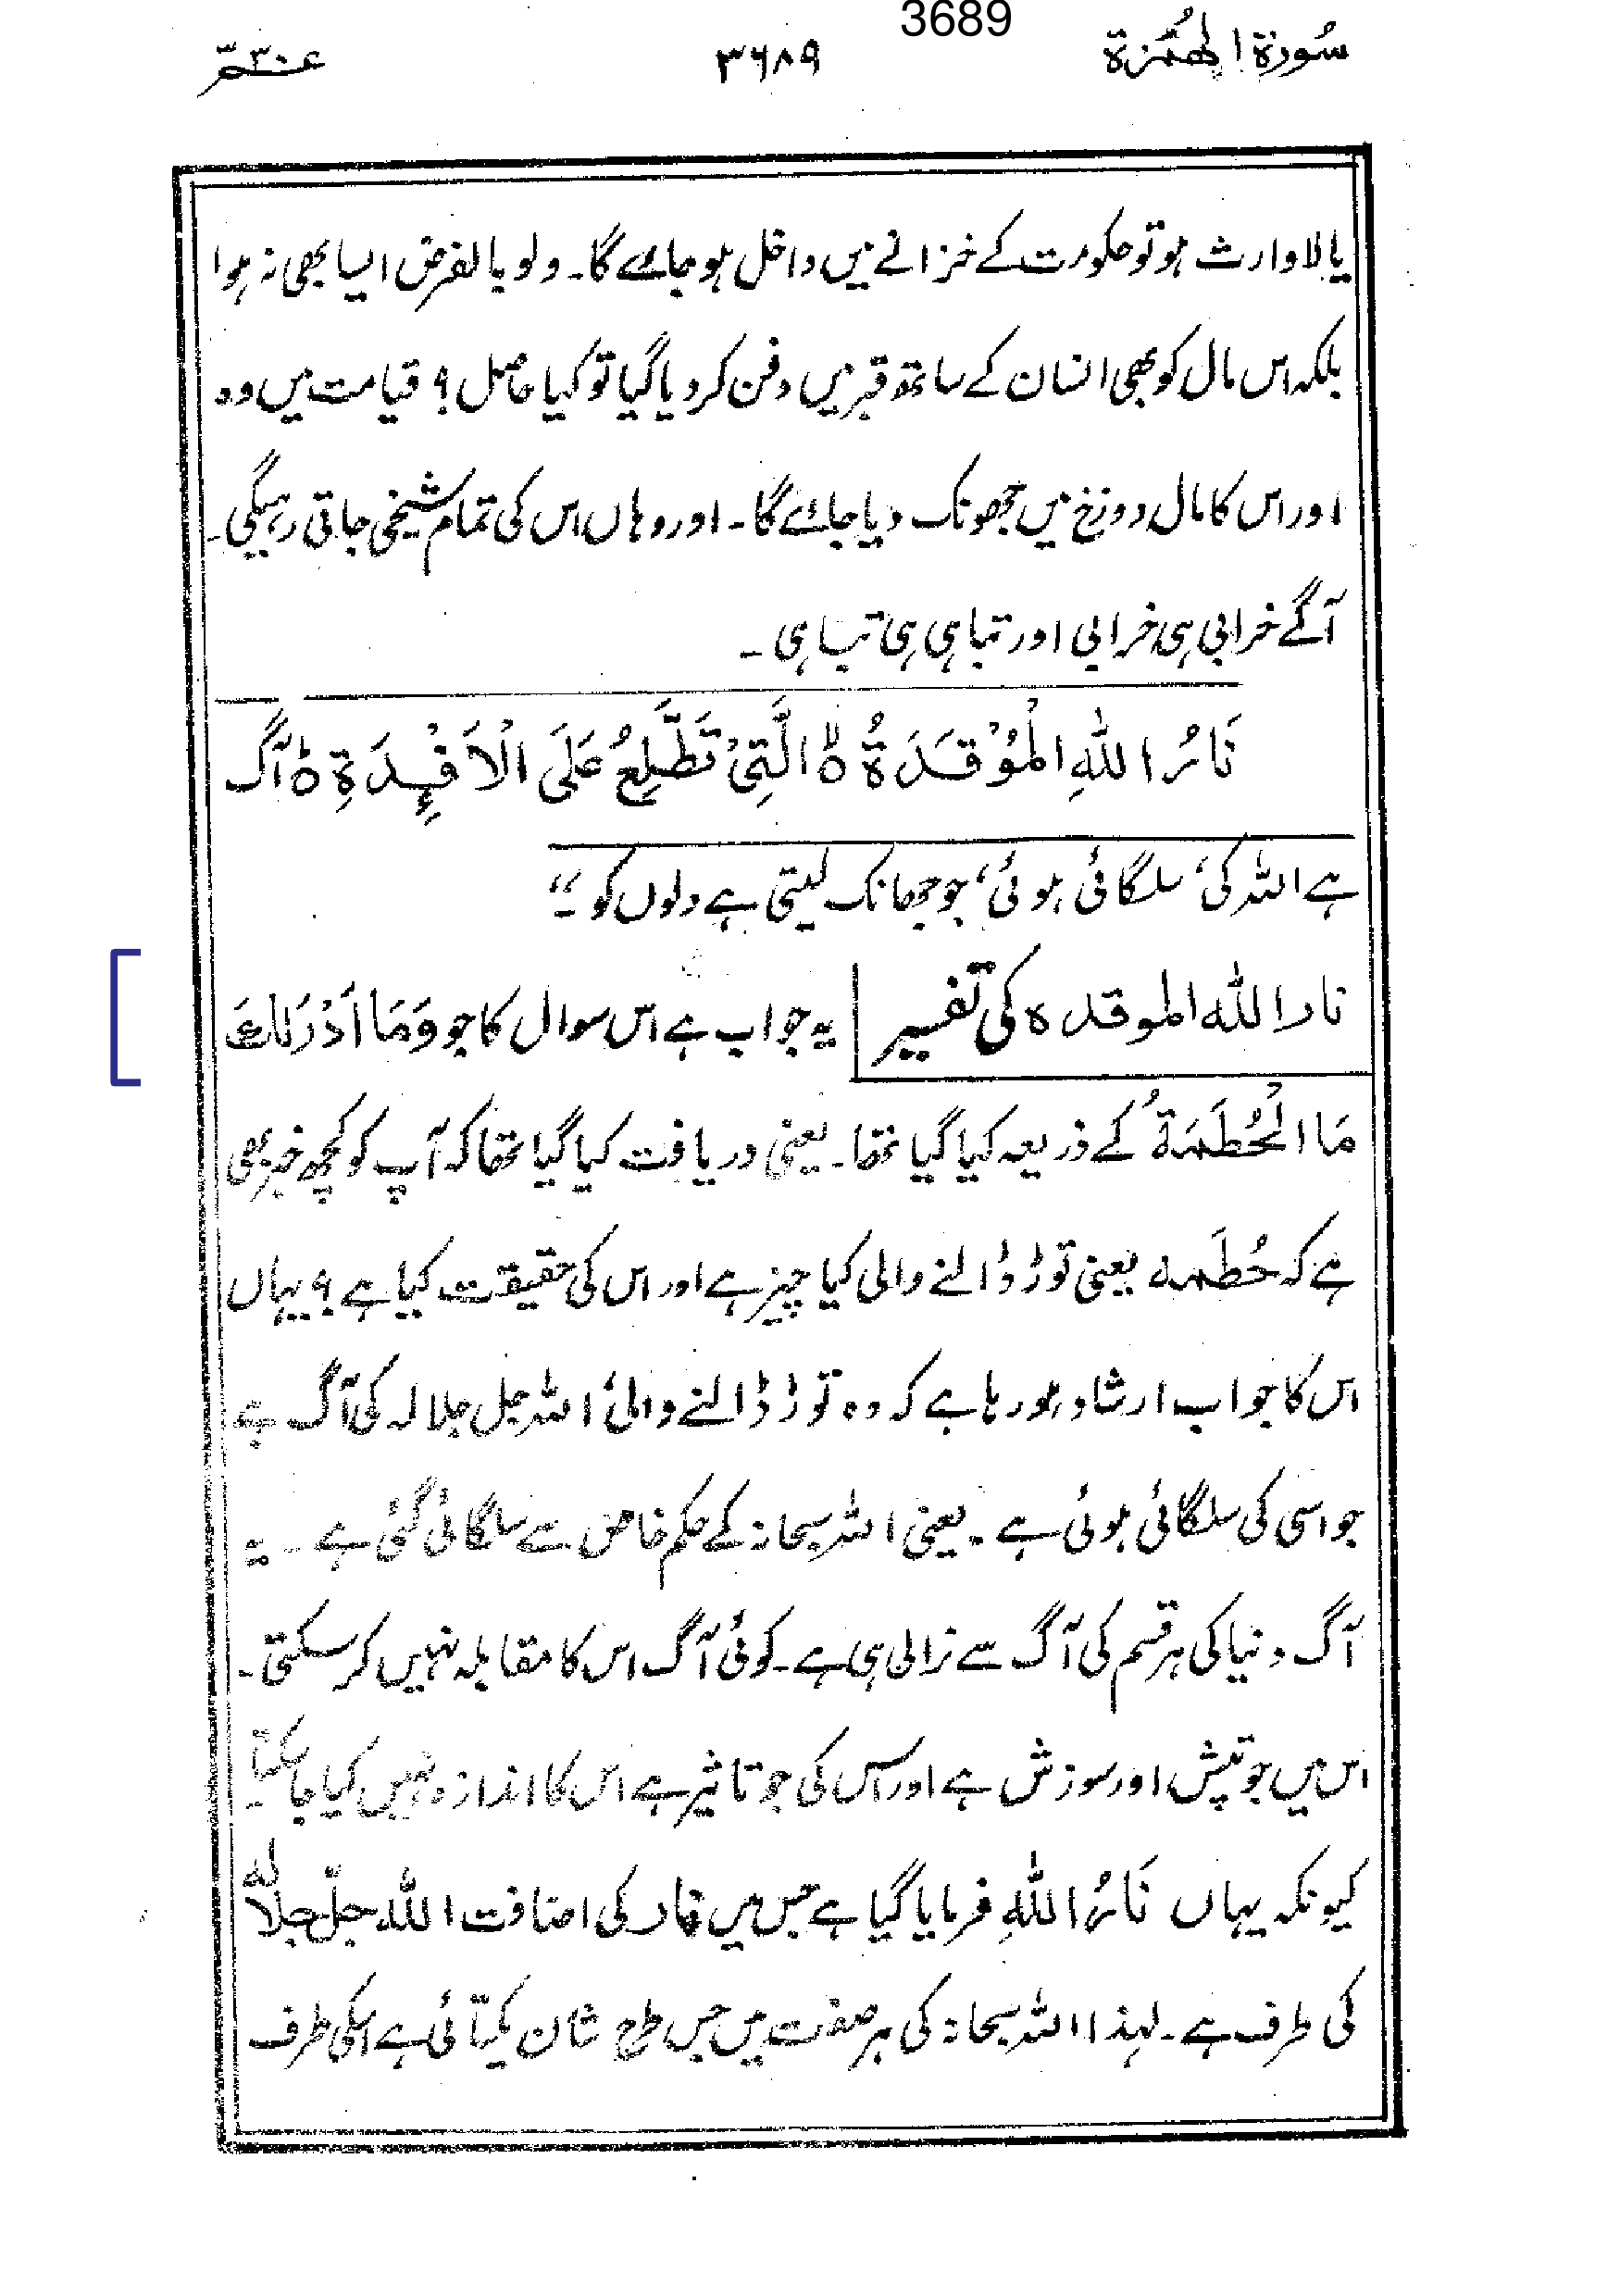 3689
سُورۃ الہُمَزۃ ۳۶۸۹ عمّ ۳۰
یا لاوارث ہو تو حکومت کے خزانے میں داخل ہو جائے گا۔ ولو بالفرض ایسا بھی نہ ہوا
بلکہ اس مال کو بھی انسان کے ساتھ قبر میں دفن کر دیا گیا تو کیا حاصل ؟ قیامت میں وہ
اور اس کا مال دوزخ میں جھونک دیا جائے گا۔ اور وہاں اس کی تمام شیخی جاتی رہیگی۔
آگے خرابی ہی خرابی اور تباہی ہی تباہی ۔
نَارُ اللّٰہِ الْمُوْقَدَۃُ ۙ الَّتِیْ تَطَّلِعُ عَلَی الْاَفْـِٕدَۃِ ؕ آگ
ہے اللہ کی، سلگائی ہوئی، جو جھانک لیتی ہے دلوں کو ۔‘‘
نار اللہ الموقدہ کی تفسیر | یہ جواب ہے اس سوال کا جو وَمَا اَدْرٰىكَ
مَا الْحُطَمَۃُ کے ذریعہ کیا گیا تھا۔ یعنی دریافت کیا گیا تھا کہ آپ کو کچھ خبر بھی
ہے کہ حُطَمہ یعنی توڑ ڈالنے والی کیا چیز ہے اور اس کی حقیقت کیا ہے ؟ یہاں
اس کا جواب ارشاد ہو رہا ہے کہ وہ توڑ ڈالنے والی، اللہ جل جلالہ کی آگ ہے
جو اسی کی سلگائی ہوئی ہے ۔ یعنی اللہ سبحانہ کے حکم خاص سے سلگائی گئی ہے ۔ یہ
آگ دنیا کی ہر قسم کی آگ سے نرالی ہی ہے ۔ کوئی آگ اس کا مقابلہ نہیں کر سکتی ۔
اس میں جو تپش اور سوزش ہے اور اس کی جو تاثیر ہے اس کا اندازہ نہیں کیا جا سکتا
کیونکہ یہاں نَارُ اللّٰہِ فرمایا گیا ہے جس میں نار کی اضافت اللہ جلّ جلالہ
کی طرف ہے ۔ لہذا اللہ سبحانہ کی ہر صفت میں جس طرح شان یکتائی ہے اسکی طرف